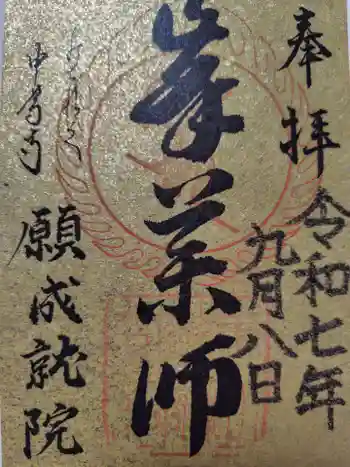 奉拝
令和七年
九月八日
峯薬師
願成就院